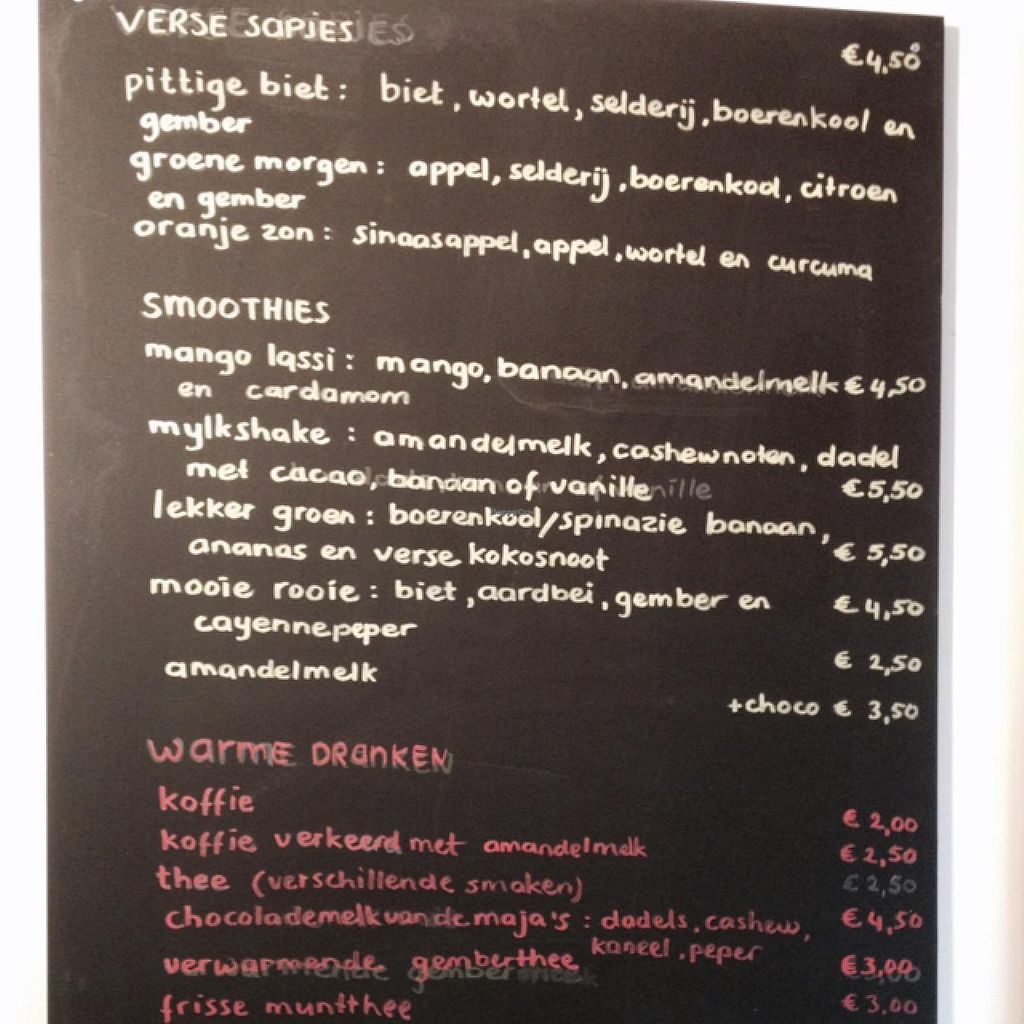 VERSE SAPJES
€4,50
pittige biet: biet, wortel, selderij, boerenkool en
gember
groene morgen: appel, selderij, boerenkool, citroen
en gember
oranje zon: sinaasappel, appel, wortel en curcuma
SMOOTHIES
mango lassi: mango, banaan, amandelmelk €4,50
en cardamom
mylkshake: amandelmelk, cashewnoten, dadel
met cacao, banaan of vanille €5,50
lekker groen: boerenkool/spinazie banaan,
ananas en verse kokosnoot € 5,50
mooie rooie: biet, aardbei, gember en € 4,50
cayennepeper
amandelmelk € 2,50
+choco € 3,50
WARME DRANKEN
koffie € 2,00
koffie verkeerd met amandelmelk € 2,50
thee (verschillende smaken) € 2,50
chocolademelk van de maja's: dadels, cashew, €4,50
kaneel, peper
verwarmende gemberthee €3,00
frisse muntthee € 3,00